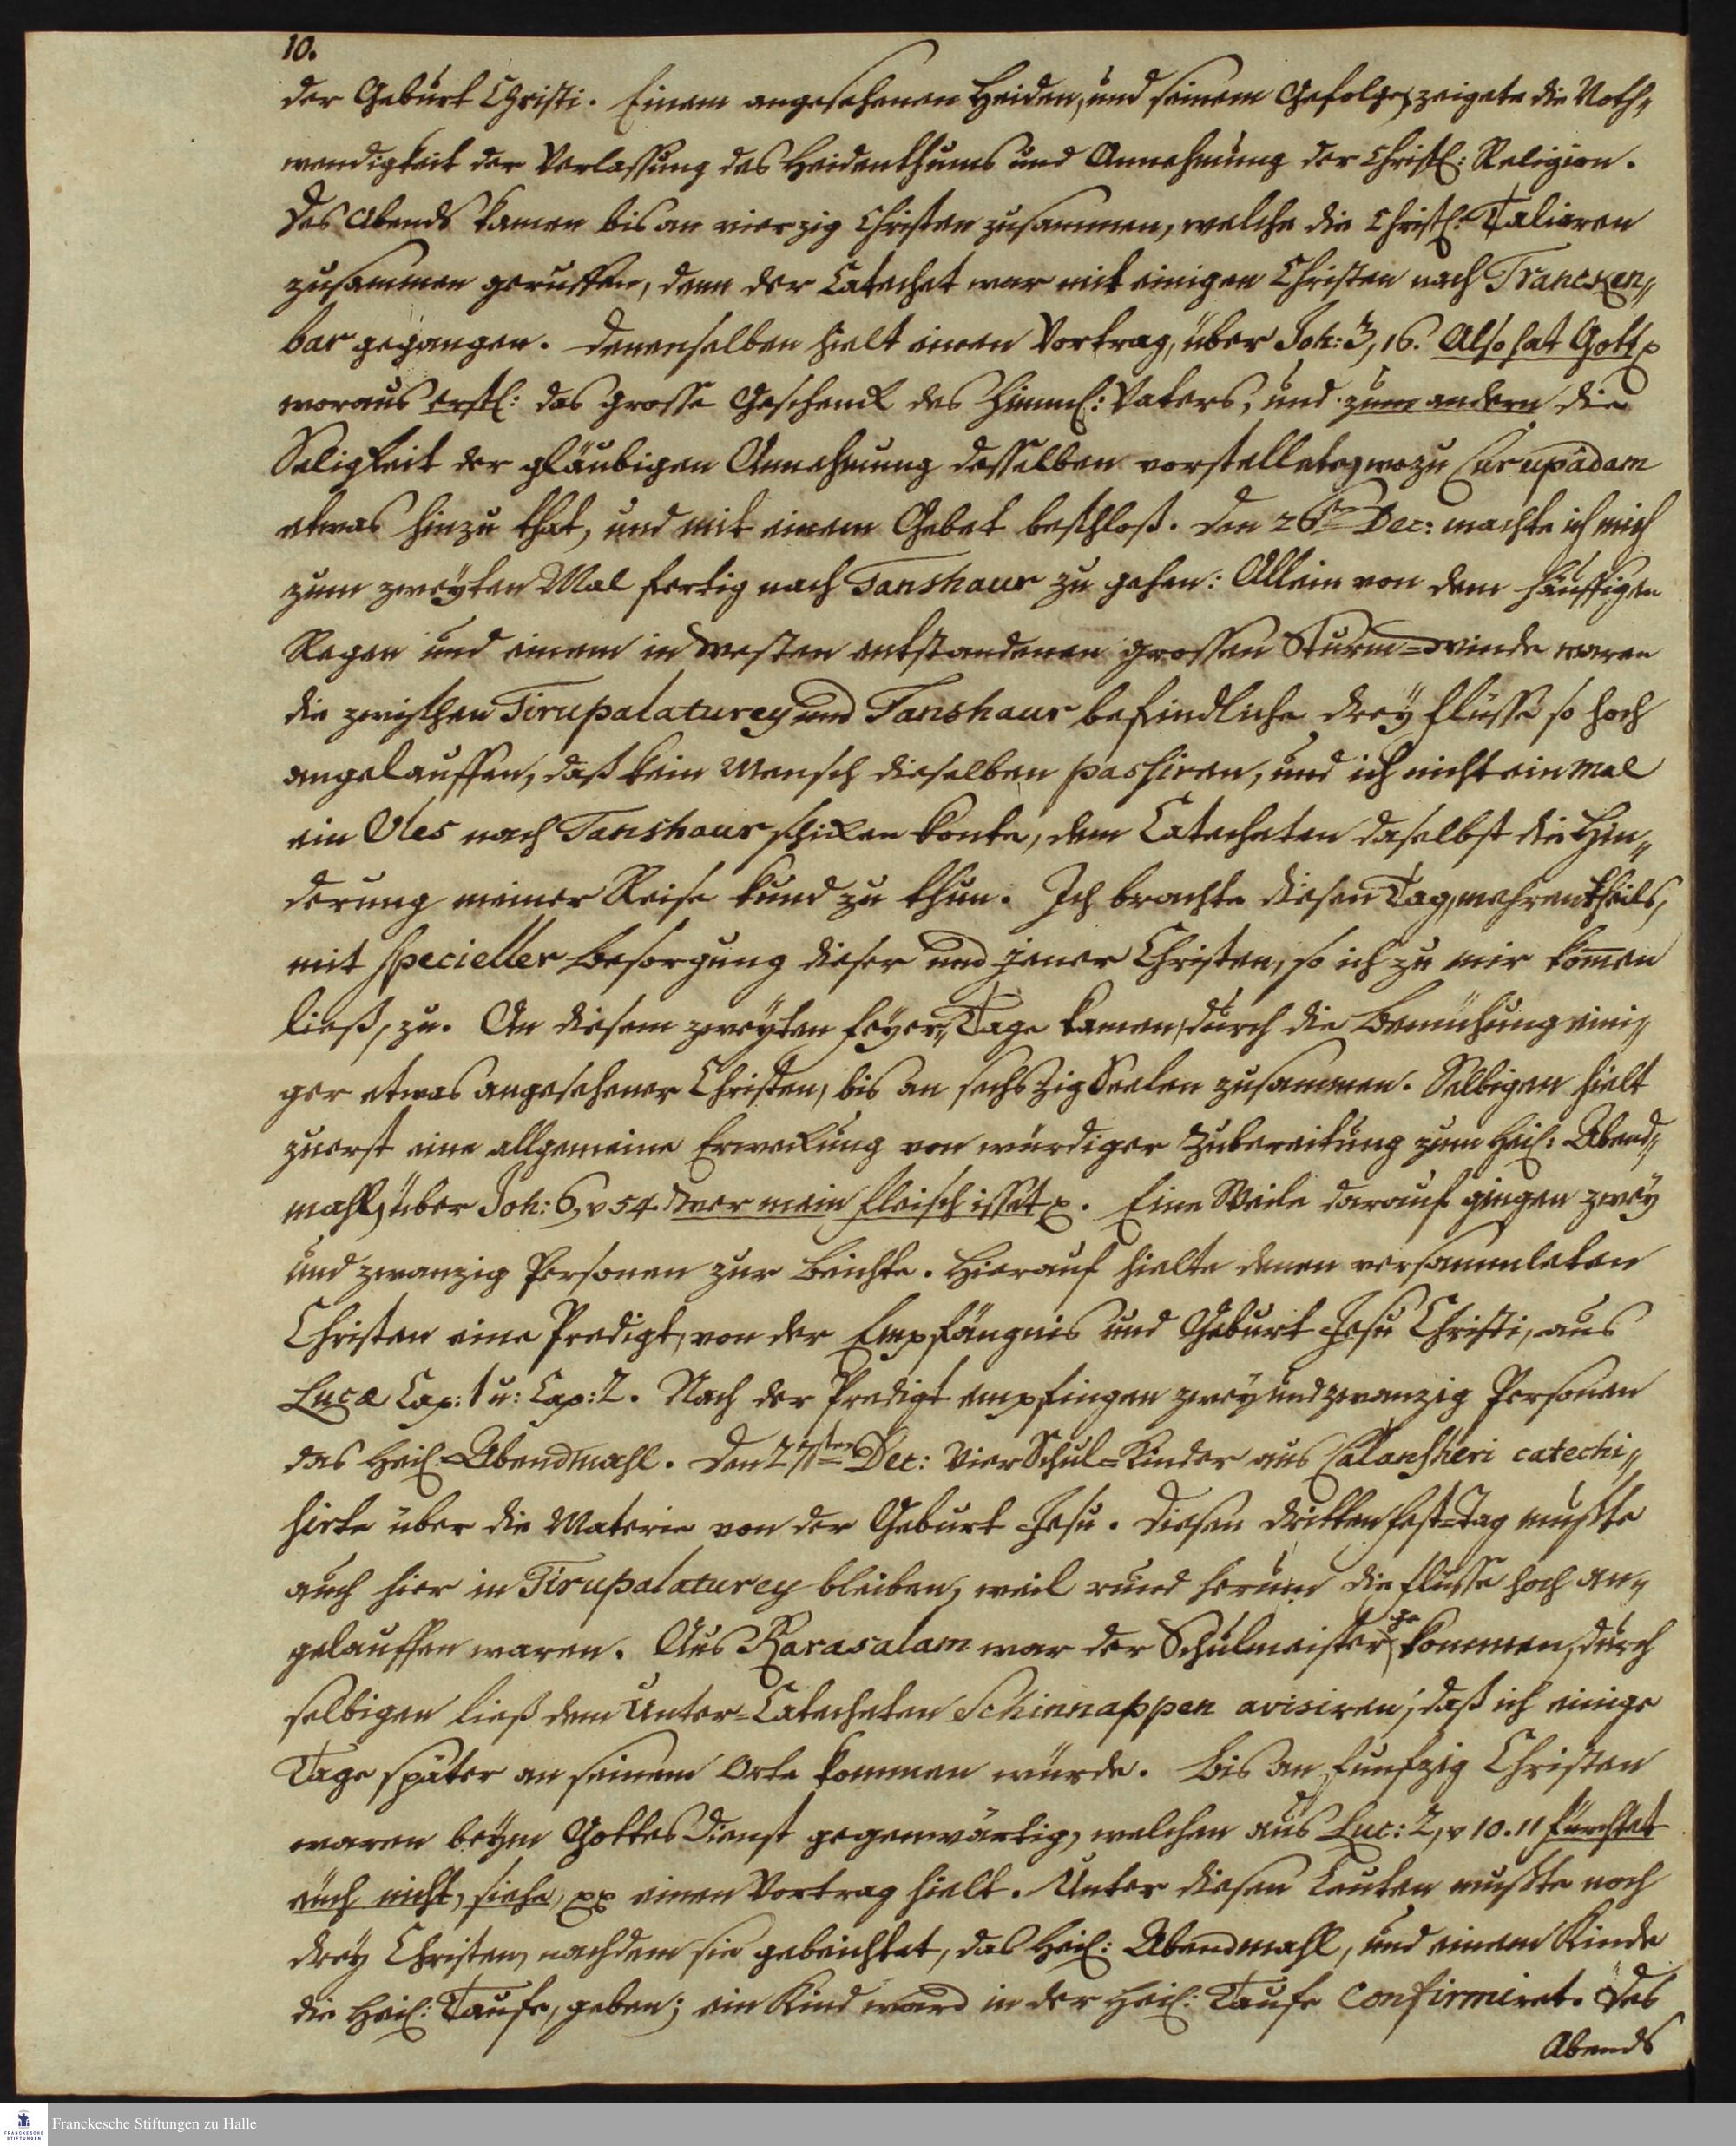 10.
der Geburt Christi. Einem angesehenen Heiden, und seinem Gefolge, zeigete die Noth„
wendigkeit der Verlassung des Heidenthums und Annehmung der Christl: Religion.
Des Abends kamen bis an vierzig Christen zusammen, welche die Christl: Taliaren
zusammen geruffen, denn der Catechet war mit einigen Christen nach Trancken„
bar gegangen. Denenselben hielt einen Vortrag, über Joh: 3, 16. Also hat Gott p
woraus erstl: das grosse Geschenck des Himml: Vaters, und zum andern die
Seligkeit der gläubigen Annehmung desselben vorstellete, wozu Curupadam
etwas hinzu that, und mit einem Gebet beschloß. Den 26ten Dec: machte ich mich
zum zweyten Mal fertig nach Tanshaur zu gehen: Allein von dem häuffigen
Regen und einem in Westen entstandenen grossen Sturm=Winde waren
die zwischen Tirupalaturey und Tanshaur befindliche drey Flüsse so hoch
angelauffen, daß kein Mensch dieselben passiren, und ich nicht ein mal
ein Oles nach Tanshaur schicken konte, dem Catecheten daselbst die Hin„
derung meiner Reise kund zu thun. Ich brachte diesen Tag, mehrentheils,
mit specieller Besorgung dieser und jener Christen, so ich zu mir kom̄en
ließ, zu. An diesem zweyten Feyer„Tage kamen, durch die Bemühung eini„
ger etwas angesehener Christen, bis an sechszig Seelen zusammen. Selbigen hielt
zuerst eine allgemeine Erweckung von würdiger Zubereitung zum Heil: Abend„
mahl, über Joh: 6, v 54 Wer mein Fleisch isset p. Eine Weile darauf gingen zwey
und zwanzig Personen zur Beichte. Hierauf hielte denen versammleten
Christen eine Predigt, von der Empfängnis und Geburt Jesu Christi, aus
Lucæ Cap: 1 u: Cap: 2. Nach der Predigt empfingen zwey und zwanzig Personen
das Heil: Abendmahl. Den 27sten Dec: Vier Schul=Kinder aus Calansheri catechi„
sirte über die Materie von der Geburt Jesu. Diesen dritten Fest=Tag mußte
auch hier in Tirupalaturey bleiben, weil rund herum die Flüsse hoch an„
gelauffen waren. Aus Karasalam war der Schulmeister gekommen, durch
selbigen ließ dem Unter=Catecheten Schinnappen avisiren, daß ich einige
Tage später an seinem Orte kommen würde. Bis an funfzig Christen
waren beym Gottesdienst gegenwärtig, welchen aus Luc: 2, v 10. 11 Fürchtet
euch nicht, siehe, pp einen Vortrag hielt. Unter diesen Leuten mußte noch
drey Christen, nachdem sie gebeichtet, das Heil: Abendmahl, und einem Kinde
die Heil: Taufe, geben; ein Kind ward in der Heil: Taufe confirmiret. Des
Abends
Franckesche Stiftungen zu Halle
FRANCKESCHE
STIFTUNGEN